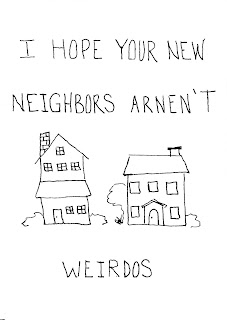 I HOPE YOUR NEW
NEIGHBORS ARNEN'T
WEIRDOS